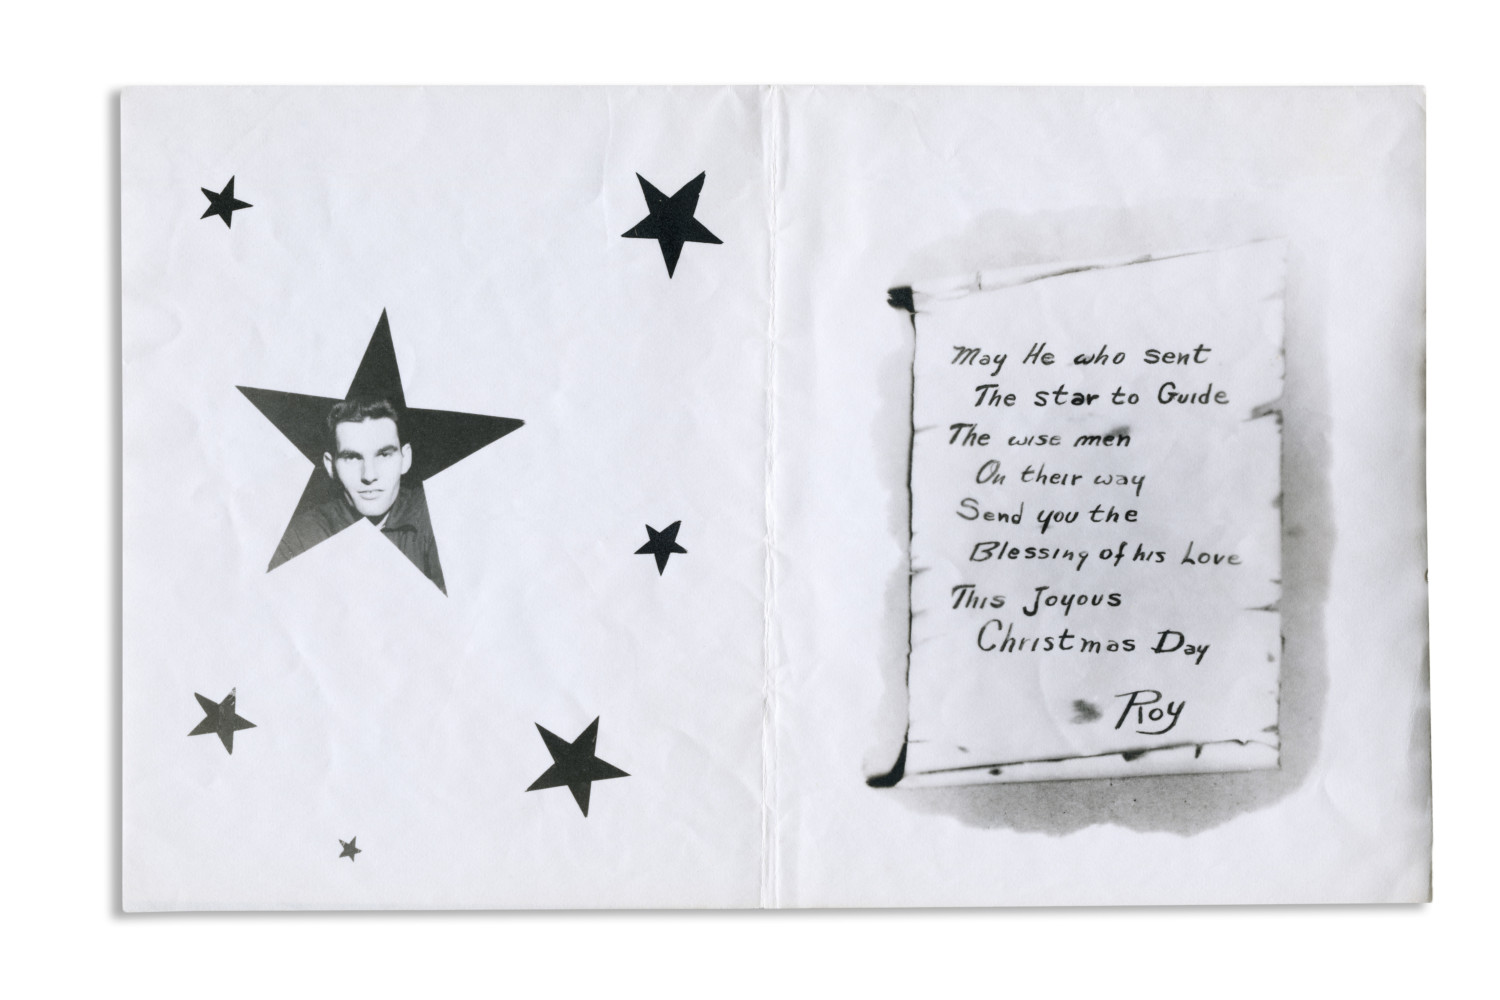 May He who sent
The star to Guide
The wise men
On their way
Send you the
Blessing of his Love
This Joyous
Christmas Day
Roy